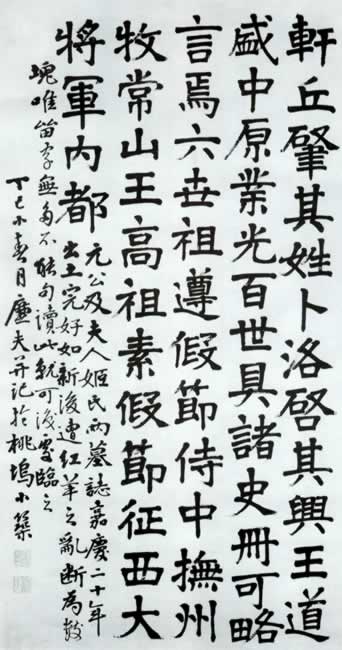 軒丘肇其姓卜洛啓其興王道
盛中原業光百世具諸史冊可略
言焉六世祖遵假節侍中撫州
牧常山王高祖素假節征西大
將軍內都
元公及夫人姬氏兩墓誌嘉慶二十年
出土完好如新後遭紅羊之亂斷為數
塊唯留字無多不能句讀此就可處臨之
丁巳小春月廉夫并記於桃塢小築